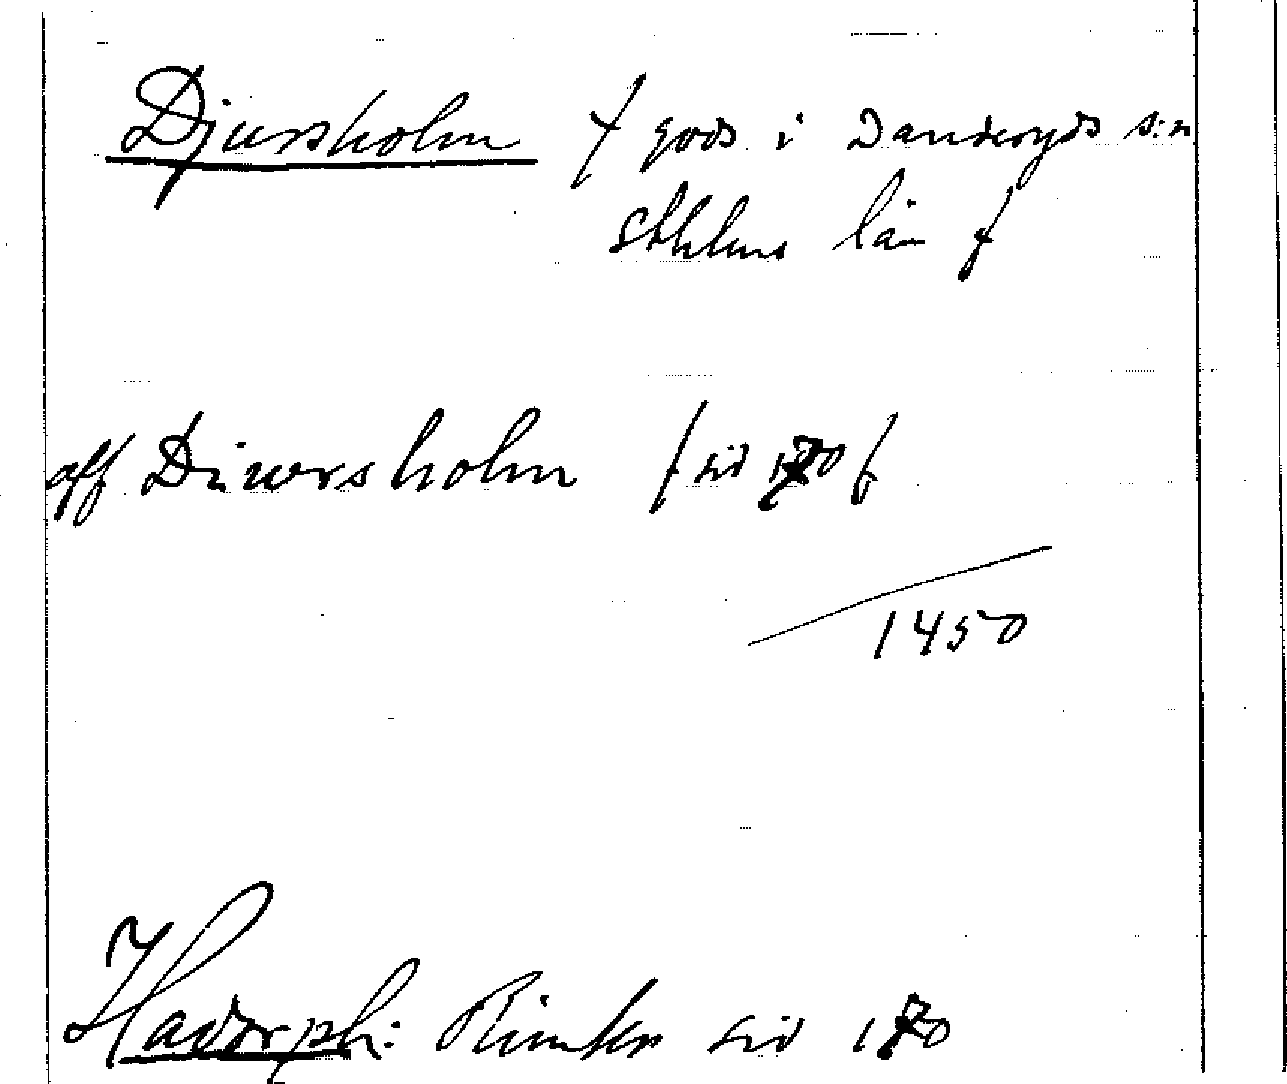 Djursholm / gods i Danderyds s:n
Sthlms län /
aff Diwrsholm / sid 170 /
1450
Hadorph: Rimkr sid 170